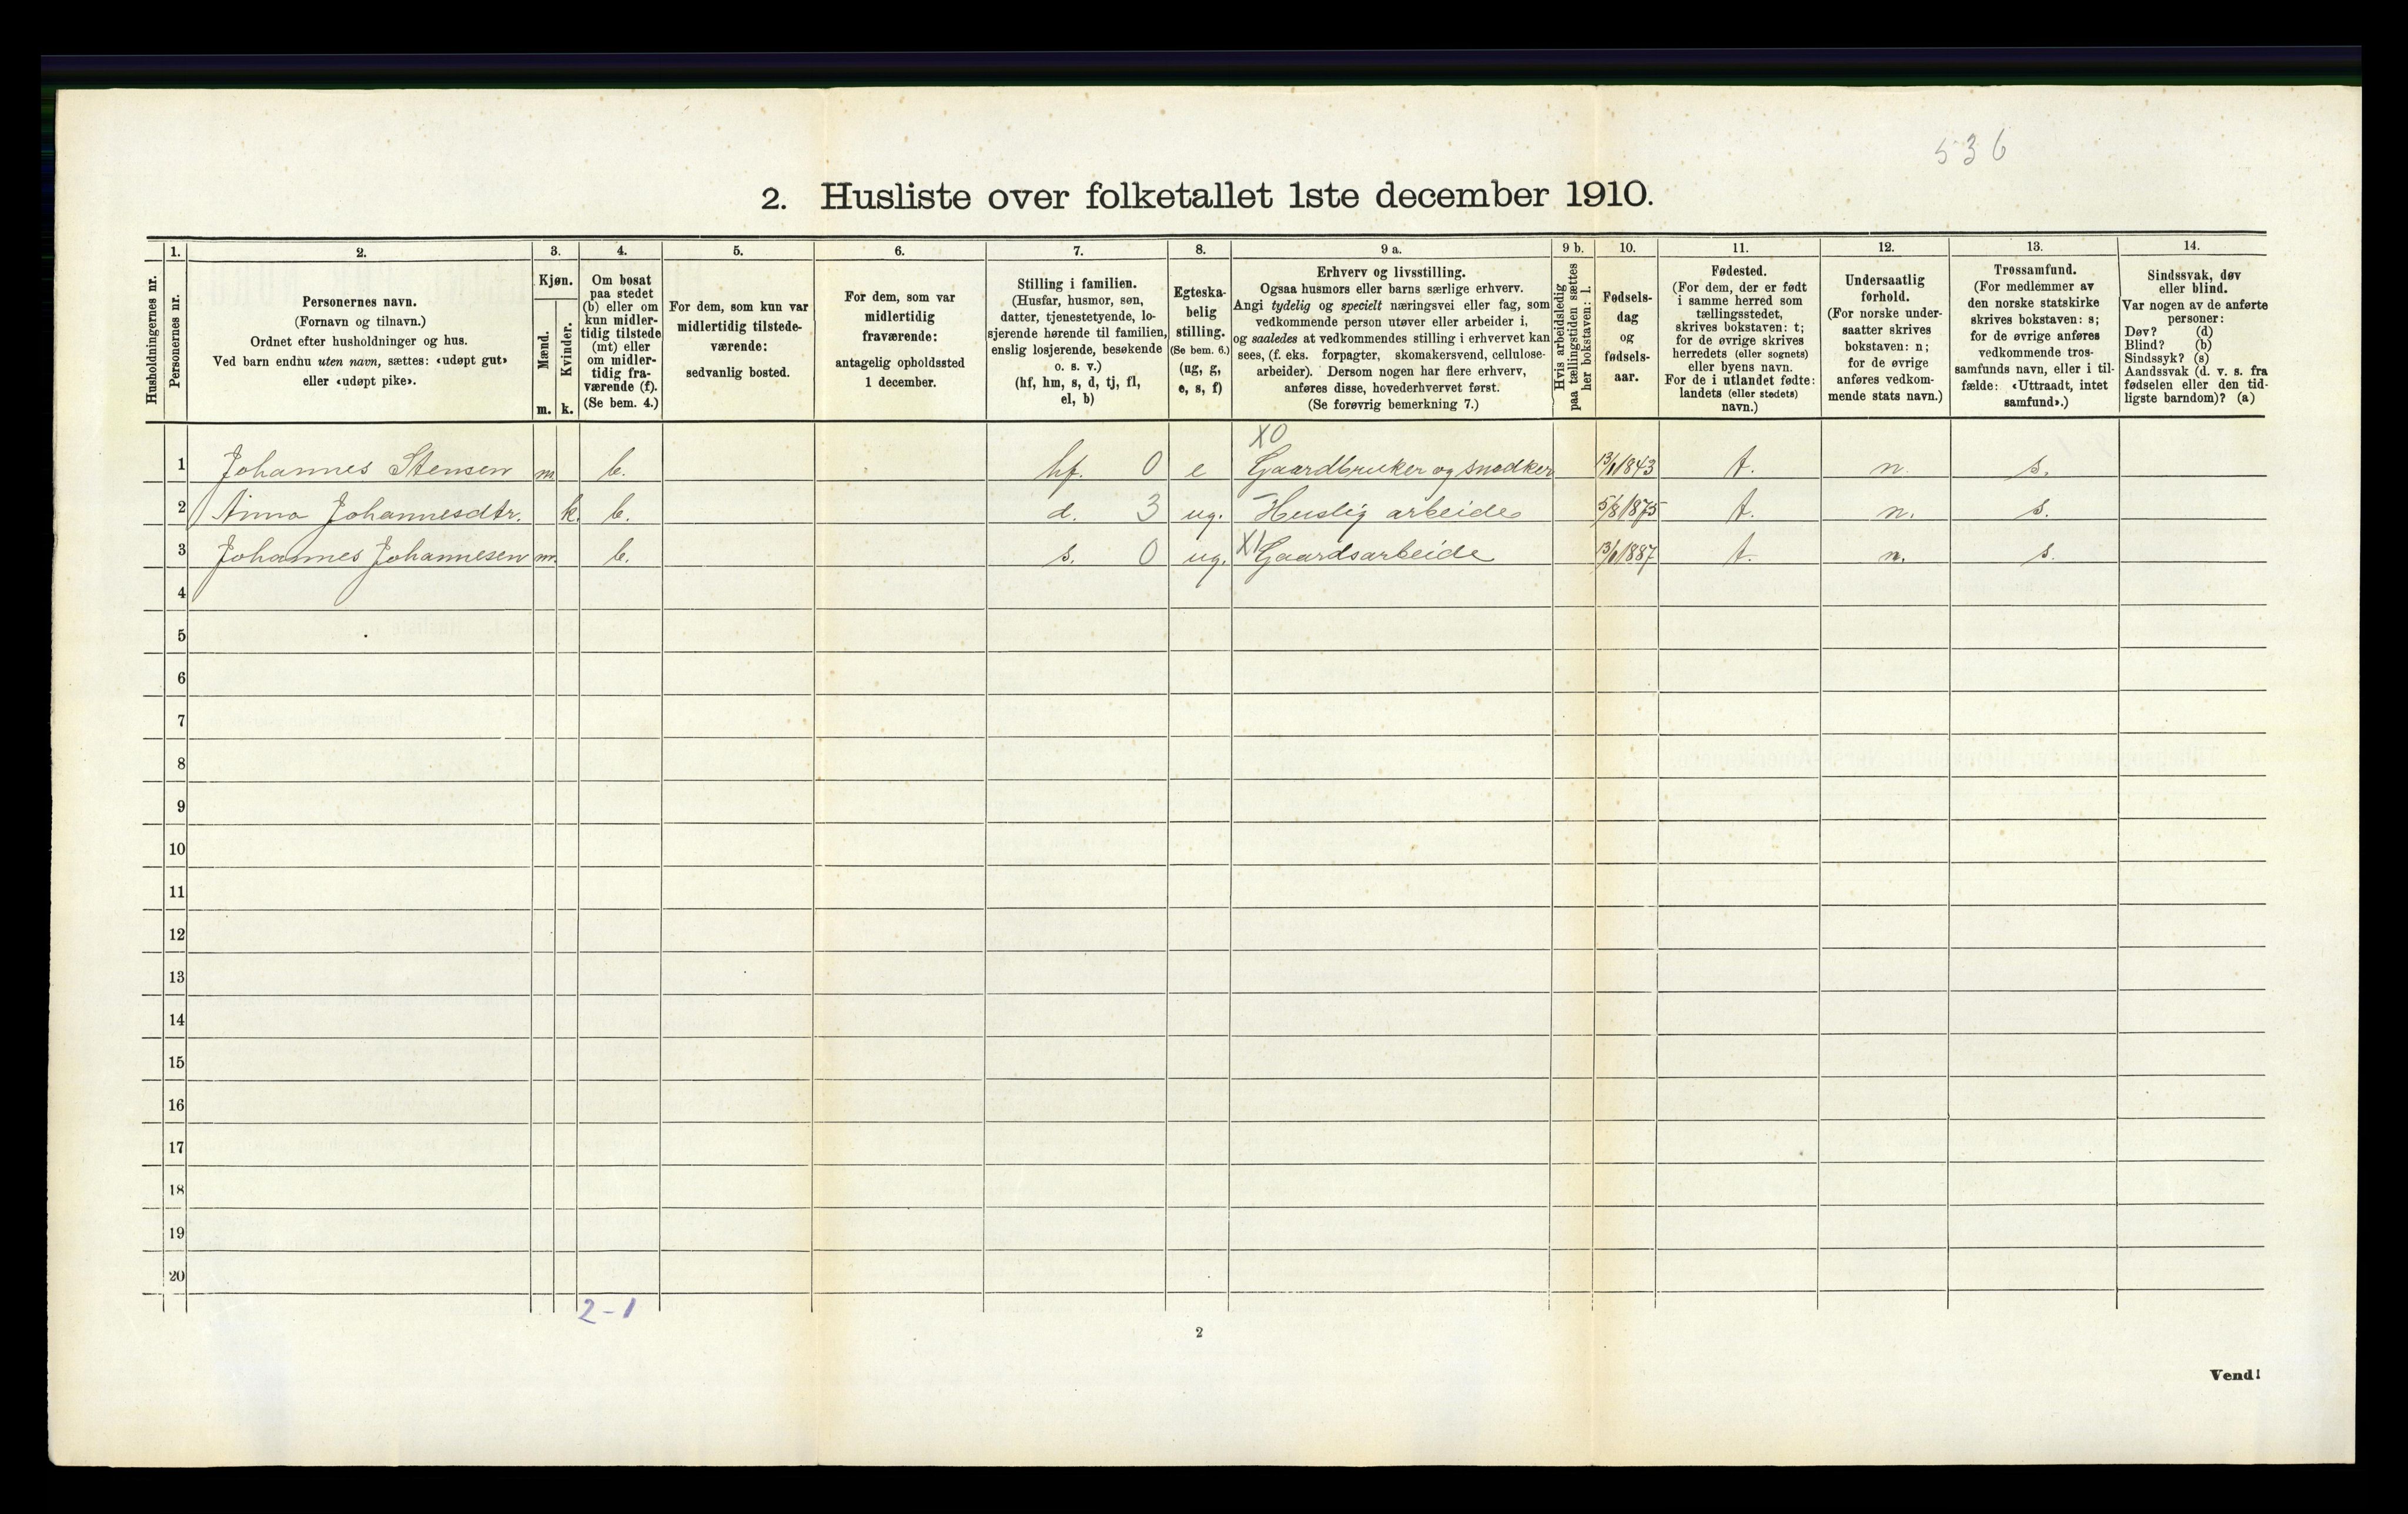 536
2. Husliste over folketallet 1ste december 1910.
1. 2. 3. 4. 5. 6. 7. 8. 9 a. 9 b. 10. 11. 12. 13. 14.
Husholdningernes nr.
Personernes nr.
Personernes navn.
(Fornavn og tilnavn.)
Ordnet efter husholdninger og hus.
Ved barn endnu uten navn, sættes: «udøpt gut»
eller «udøpt pike».
Kjøn.
Mænd.
Kvinder.
m. k.
Om bosat
paa stedet
(b) eller om
kun midler-
tidig tilstede
(mt) eller
om midler-
tidig fra-
værende (f).
(Se bem. 4.)
For dem, som kun var
midlertidig tilstede-
værende:
sedvanlig bosted.
For dem, som var
midlertidig
fraværende:
antagelig opholdssted
1 december.
Stilling i familien.
(Husfar, husmor, søn,
datter, tjenestetyende, lo-
sjerende hørende til familien,
enslig losjerende, besøkende
o. s. v.)
(hf, hm, s, d, tj, fl,
el, b)
Egteska-
belig
stilling.
(Se bem. 6.)
(ug, g,
e, s, f)
Erhverv og livsstilling.
Ogsaa husmors eller barns særlige erhverv.
Angi tydelig og specielt næringsvei eller fag, som
vedkommende person utøver eller arbeider i,
og saaledes at vedkommendes stilling i erhvervet kan
sees, (f. eks. forpagter, skomakersvend, cellulose-
arbeider). Dersom nogen har flere erhverv,
anføres disse, hovederhvervet først.
(Se forøvrig bemerkning 7.)
Hvis arbeidsledig
paa tællingstiden sættes
her bokstaven: l.
Fødsels-
dag
og
fødsels-
aar.
Fødested.
(For dem, der er født
i samme herred som
tællingsstedet,
skrives bokstaven: t;
for de øvrige skrives
herredets (eller sognets)
eller byens navn.
For de i utlandet fødte:
landets (eller stedets)
navn.)
Undersaatlig
forhold.
(For norske under-
saatter skrives
bokstaven: n;
for de øvrige
anføres vedkom-
mende stats navn.)
Trossamfund.
(For medlemmer av
den norske statskirke
skrives bokstaven: s;
for de øvrige anføres
vedkommende tros-
samfunds navn, eller i til-
fælde: «Uttraadt, intet
samfund».)
Sindssvak, døv
eller blind.
Var nogen av de anførte
personer:
Døv? (d)
Blind? (b)
Sindssyk? (s)
Aandssvak (d. v. s. fra
fødselen eller den tid-
ligste barndom)? (a)
X0
1 Johannes Stensen m b. hf. 0 e Gaardbruker og snedker 13/1 1843 t. n. s.
2 Anna Johannesdtr. k. b. d. 3 ug. Huslig arbeide 5/8 1875 t. n. s.
3 Johannes Johannesen m. b. s. 0 ug. X1 Gaardsarbeide 13/1 1887 t. n. s.
4
5
6
7
8
9
10
11
12
13
14
15
16
17
18
19
20
2-1
2
Vend!